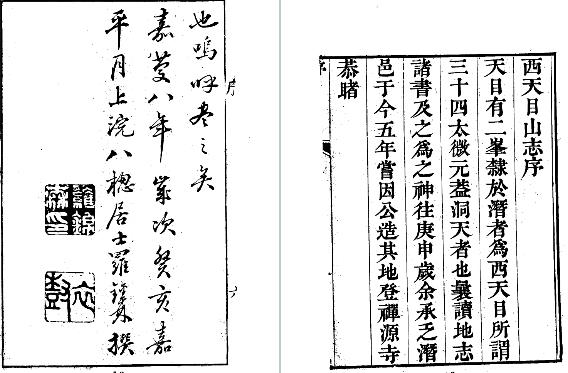 西天目山志序
天目有二峯隸於潛者為西天目所謂
三十四太微元葢洞天者也曩讀地志
諸書及之為之神往庚申歲余承乏潛
邑于今五年嘗因公造其地登禪源寺
恭睹
序
序
六
也嗚呼盡之矣
嘉慶八年歲次癸亥嘉
平月上浣八穗居士羅撰
羅錦森印